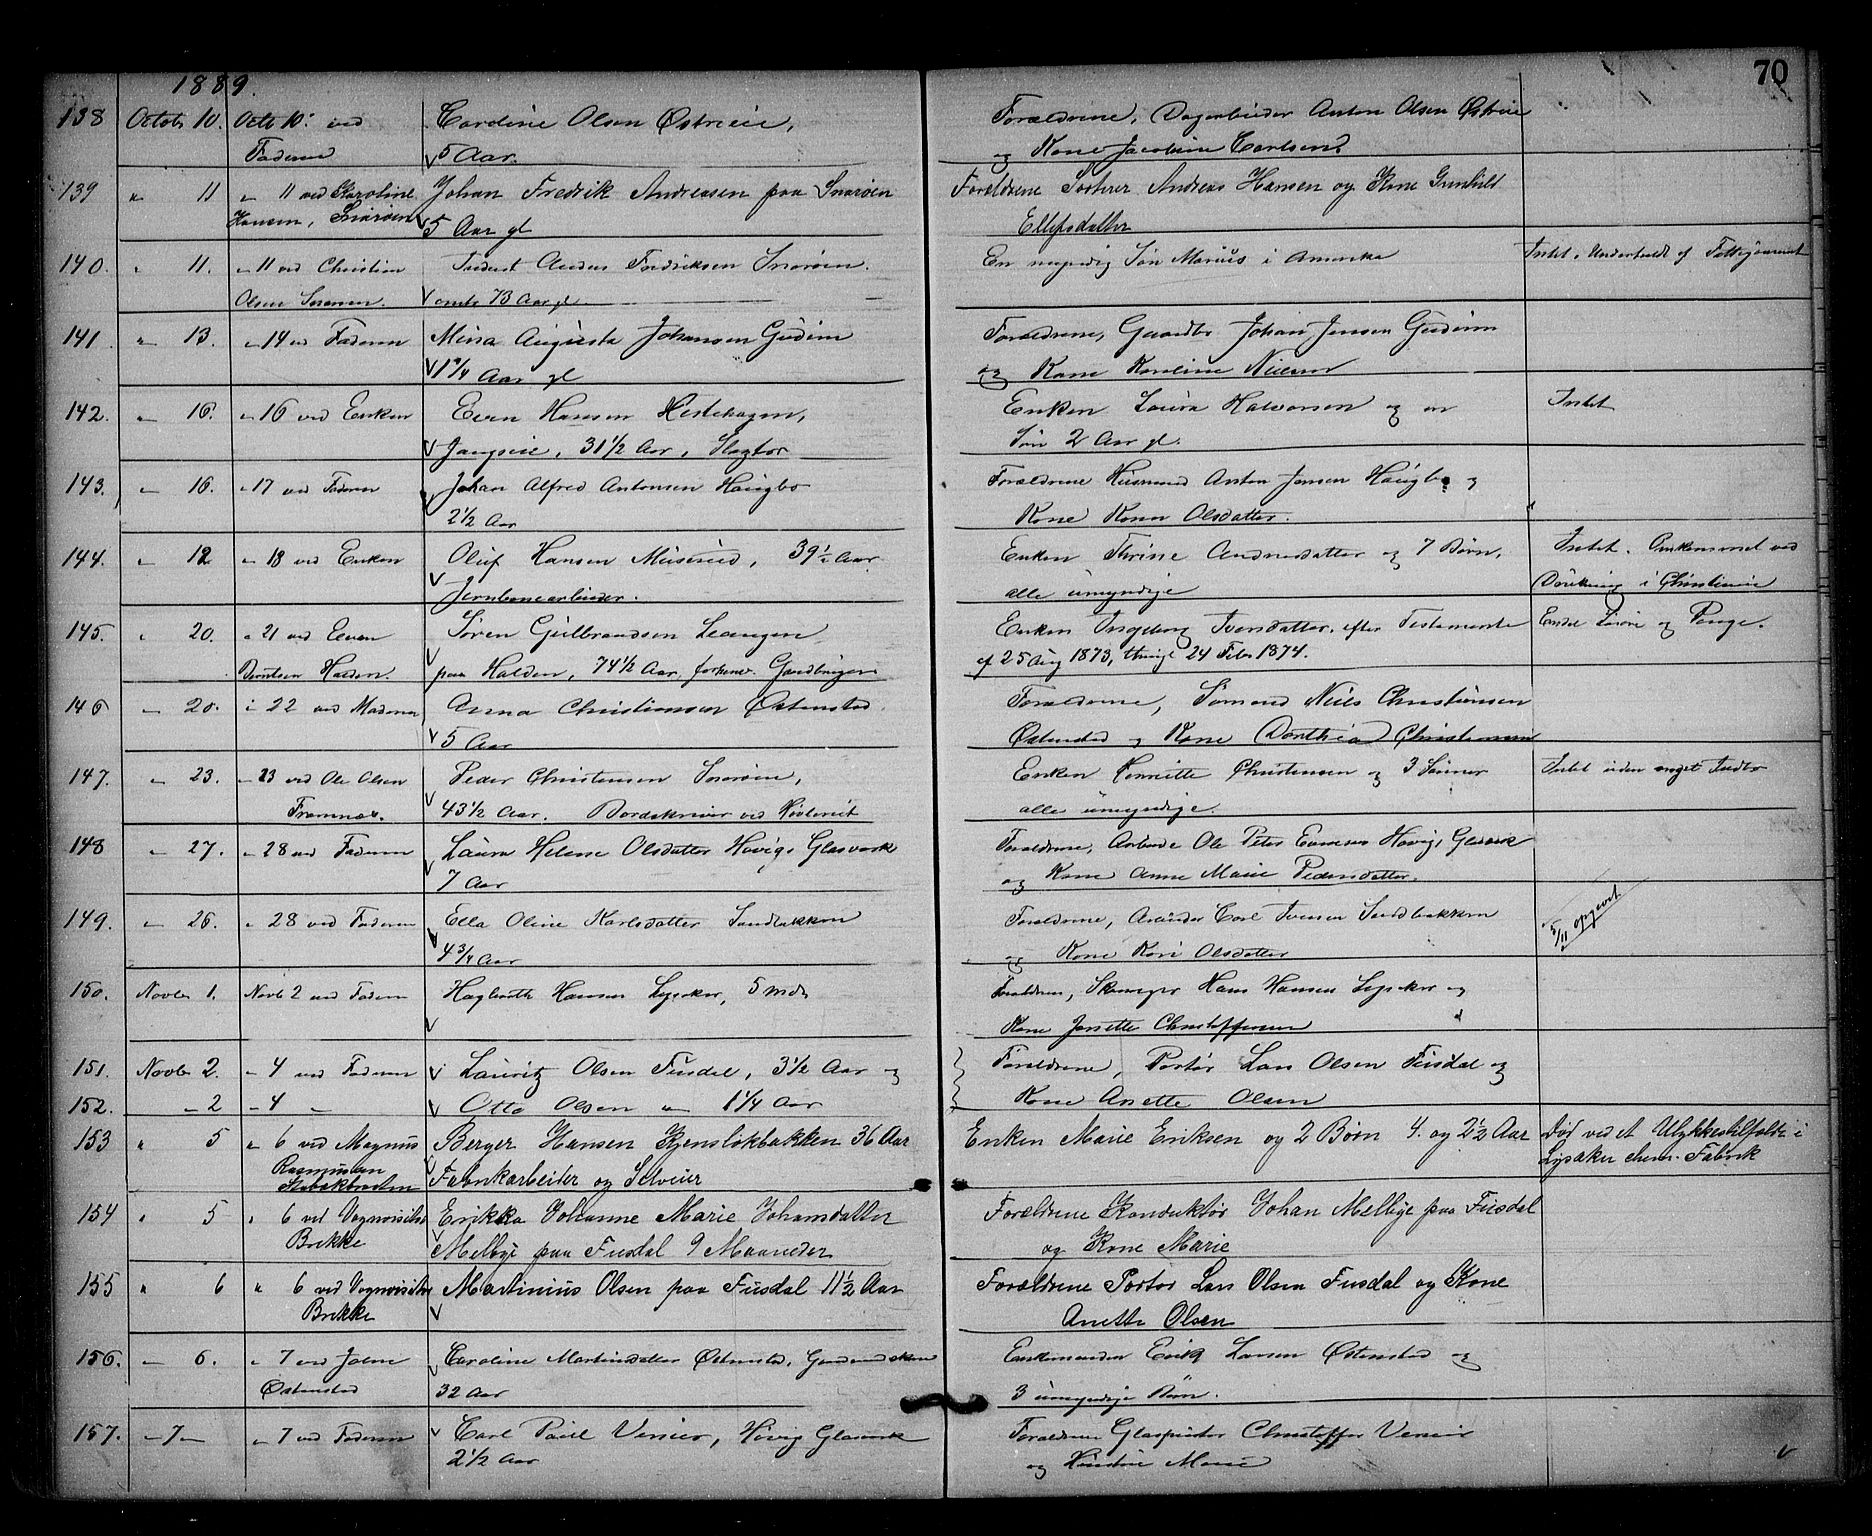 1889.
70
138 Octob 10. Octb 10. ved Cardine Olsen Østreie, Forældrene, Dagarbeider Anton Olsen Østreie
Faderen 5 Aar. og Kone Jacobine Carlsend.
139 " 11 " 11 ved Karoline Johan Fredrik Andreasen paa Snarøen Forældrene Andreas Hansen og Kone Gunhild
Hansen, Snarøen 5 Aar gl Ellefsdatter
140. " 11. " 11 ved Christian Anders Fredriksen Snarøen. En myndig Søn Marius i Amerika Intet. Underholdt af Fattigvæsenet
Olsen Snarøen. omtr 73 Aar gl
141. " 13. " 14 ved Faderen Mina Augusta Johansen Gudim Forældrene, Gaardbr Johan Jensen Gudim
Aar gl og Kone Karoline Nielsen
142. " 16. " 16 ved Enken Even Hansen Hestehagen, Enken Laura Halvorsen og en Intet
31½ Aar, Slagter Søn 2 Aar gl.
143. " 16. " 17 ved Faderen Johan Alfred Antonsen Haugbo Forældrene Husmand Anton Jensen Haugbo og
2½ Aar Kone Olsdatter.
144. " 12 " 18 ved Enken Oluf Hansen Muserud, 39½ Aar Enken Thrine Andersdatter og 7 Børn, Intet. Omkommet ved
Jernbanearbeider. alle umyndige Drukning i Christiania
145. " 20. " 21 ved Even Søren Gulbrandsen Leangen Enken Ingeborg Iversdatter, efter Testamente Endel Løsøre og Penge.
Berntsen Halden. paa Halden, 74½ Aar, Gaardbruger af 25 Aug 1873, thingl 24 Febr 1874.
146 " 20. " 22 ved Moderen Anna Christiansen Østenstad. Forældrene, Sømand Niels Christiansen
5 Aar Østenstad og Kone Dorthea Christiansen
147. " 23. " 23 ved Ole Olsen Peder Christensen Snarøen, Enken Henriette Christensen og 3 Sønner Intet uden noget Indbo
Framnæs. 43½ Aar. Bordskriver ved alle umyndige.
148 " 27. " 28 ved Faderen Laura Helene Olsdatter Høvigs Glasværk Forældrene, Arbeider Ole Peter Høvigs Glasværk
7 Aar og Kone Anne Marie Pedersdatter.
149. " 26. " 28 ved Faderen Ella Oline Karlsdatter Sandbakken Forældrene, Arbeider Carl Iversen Sandbakken 5/11 opgivet
4¾ Aar og Kone Kari Olsdatter
150. Novbr 1. Novb 2 ved Faderen Hagbarth Hansen Lysaker, 5 Mdr Forældrene, Skomager Hans Hansen Lysaker og
Kone Janette Christoffersen
151. Novbr 2. " 4 ved Faderen Lauritz Olsen Fusdal, 3½ Aar og Forældrene, Portør Lars Olsen Fusdal og
152. " 2 " 4 " Otto Olsen " 1¼ Aar Kone Anette Olsen
153 " 5 " 6 ved Magnus Berger Hansen Kjensløkbakken 36 Aar Enken Marie Eriksen og 2 Børn 4. og 2½ Aar Død ved et Ulykkestilfælde i
Rasmussen Stabækbraaten Fabrikarbeider og Selveier Lysaker chem. Fabrik
154 " 5 " 6 ved Vognvisitør Erikka Johanne Marie Johansdatter Forældrene Konduktør Johan Melbye paa Fusdal
Brekke Melbye paa Fusdal 9 Maaneder og Kone Marie
155 " 6 " 6 ved Vognvisitør Martinius Olsen paa Fusdal 11½ Aar Forældrene Portør Lars Olsen Fusdal og Kone
Brekke Anette Olsen
156. " 6. " 7 ved Østenstad Caroline Martinsdatter Østenstad, Enkemanden Erik Larsen Østenstad og
32 Aar 3 umyndige Børn.
157. " 7 " " 7 ved Faderen Carl Paul Venier, Høvig Glasværk Forældrene Glaspuster Christoffer Venier
2½ Aar og Marie